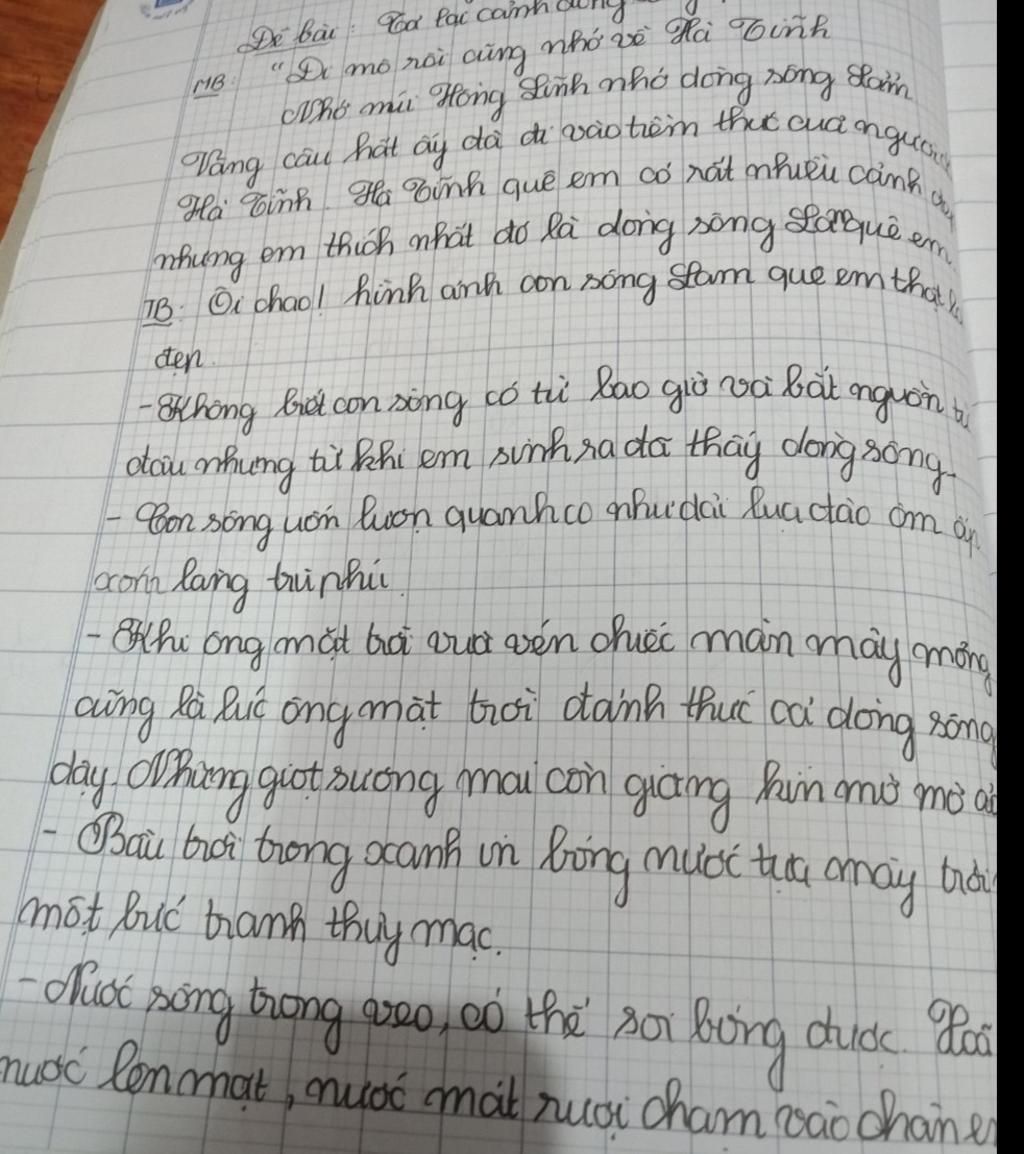 Đề bài: Tả lại cảnh dòng
MB: "Đi mô rồi cũng nhớ về Hà Tĩnh
Nhớ núi Hồng Lĩnh nhớ dòng sông Lam
Vâng câu hát ấy đã đi vào tiềm thức của người
Hà Tĩnh. Hà Tĩnh quê em có rất nhiều cảnh đẹp
nhưng em thích nhất đó là dòng sông Lam quê em.
TB: Ôi chao! hình ảnh con sông Lam quê em thật là
đẹp.
- Không biết con sông có từ bao giờ và bắt nguồn từ
đâu nhưng từ khi em sinh ra đã thấy dòng sông.
- Con sông uốn lượn quanh co như dải lụa đào ôm ấp
xóm làng trù phú.
- Khi ông mặt trời vừa vén chiếc màn mây mỏng
cũng là lúc ông mặt trời đánh thức cả dòng sông
dậy. Những giọt sương mai còn giăng kín mờ mờ ảo
- Bầu trời trong xanh in bóng nước tựa mây trời
một bức tranh thuỷ mạc.
- Nước sông trong veo, có thể soi bóng được. Hoà
nước lên mặt, nước mát rượi chạm vào chân em